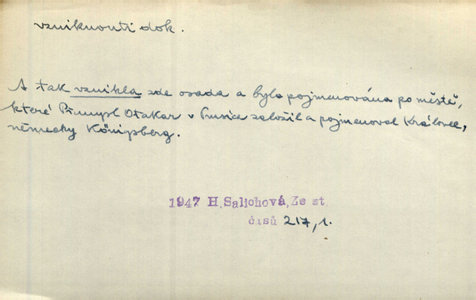 vzniknouti dok.
A tak vznikla zde osada a byla pojmenována po městě,
které Přemysl Otakar v Prusích založil a pojmenoval Královec,
německy Königsberg.
1947 H. Salichová, Ze st
čísů 217, 1.